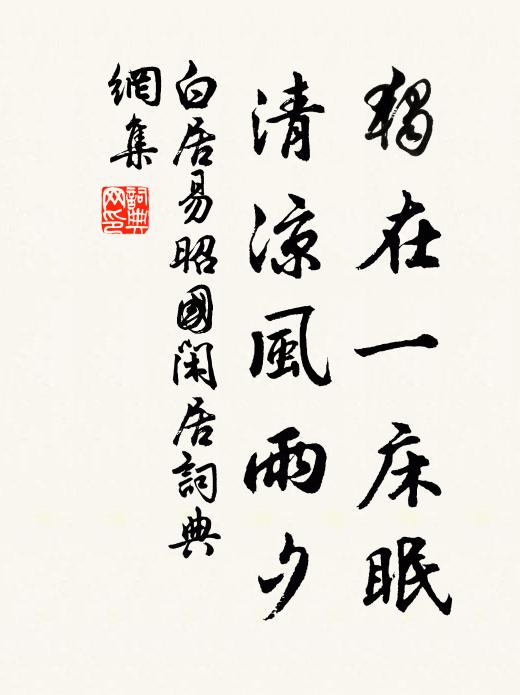 獨在一床眠
清涼風雨夕
白居易昭國閑居詞典
網集
詞典
网印